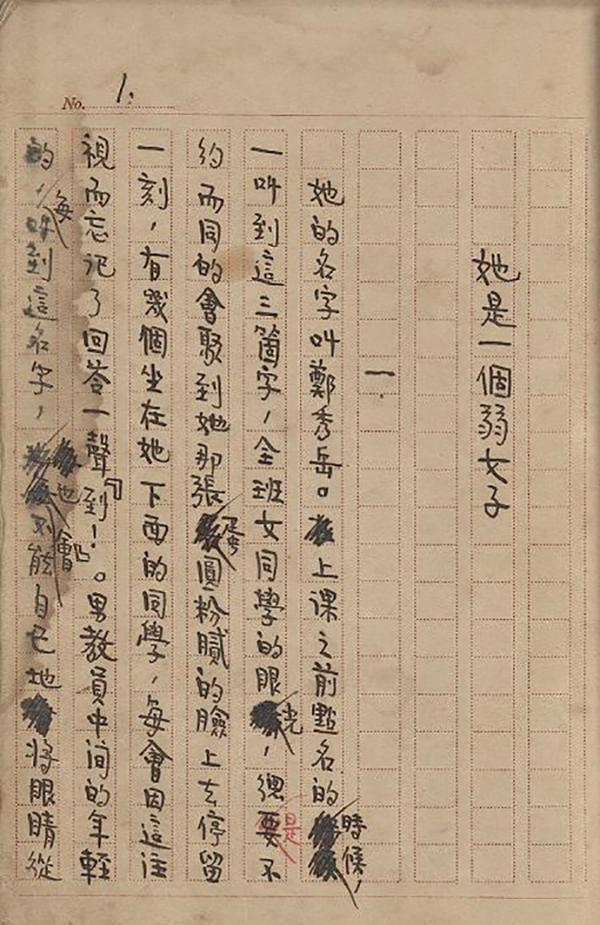 No. 1.
她是一個弱女子
一.
她的名字叫鄭秀岳。上课之前點名的時候,
一叫到這三箇字,全班女同學的眼光,總是不
約而同的會聚到她那張蛋圓粉膩的臉上去停留
一刻,有幾個坐在她下面的同學,每會因這注
視而忘记了回答一聲『到!』。男教員中间的年輕
的,每叫到這名字,也會不能自已地將眼睛從